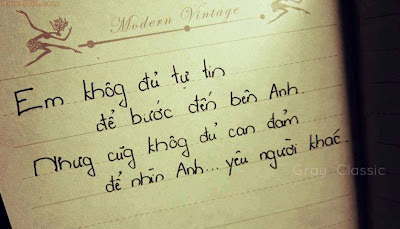 Modern Vintage
Em khôg đủ tự tin
để bước đến bên Anh.
Nhưg cũg khôg đủ can đảm
để nhìn Anh... yêu người khác.
Grau Classic